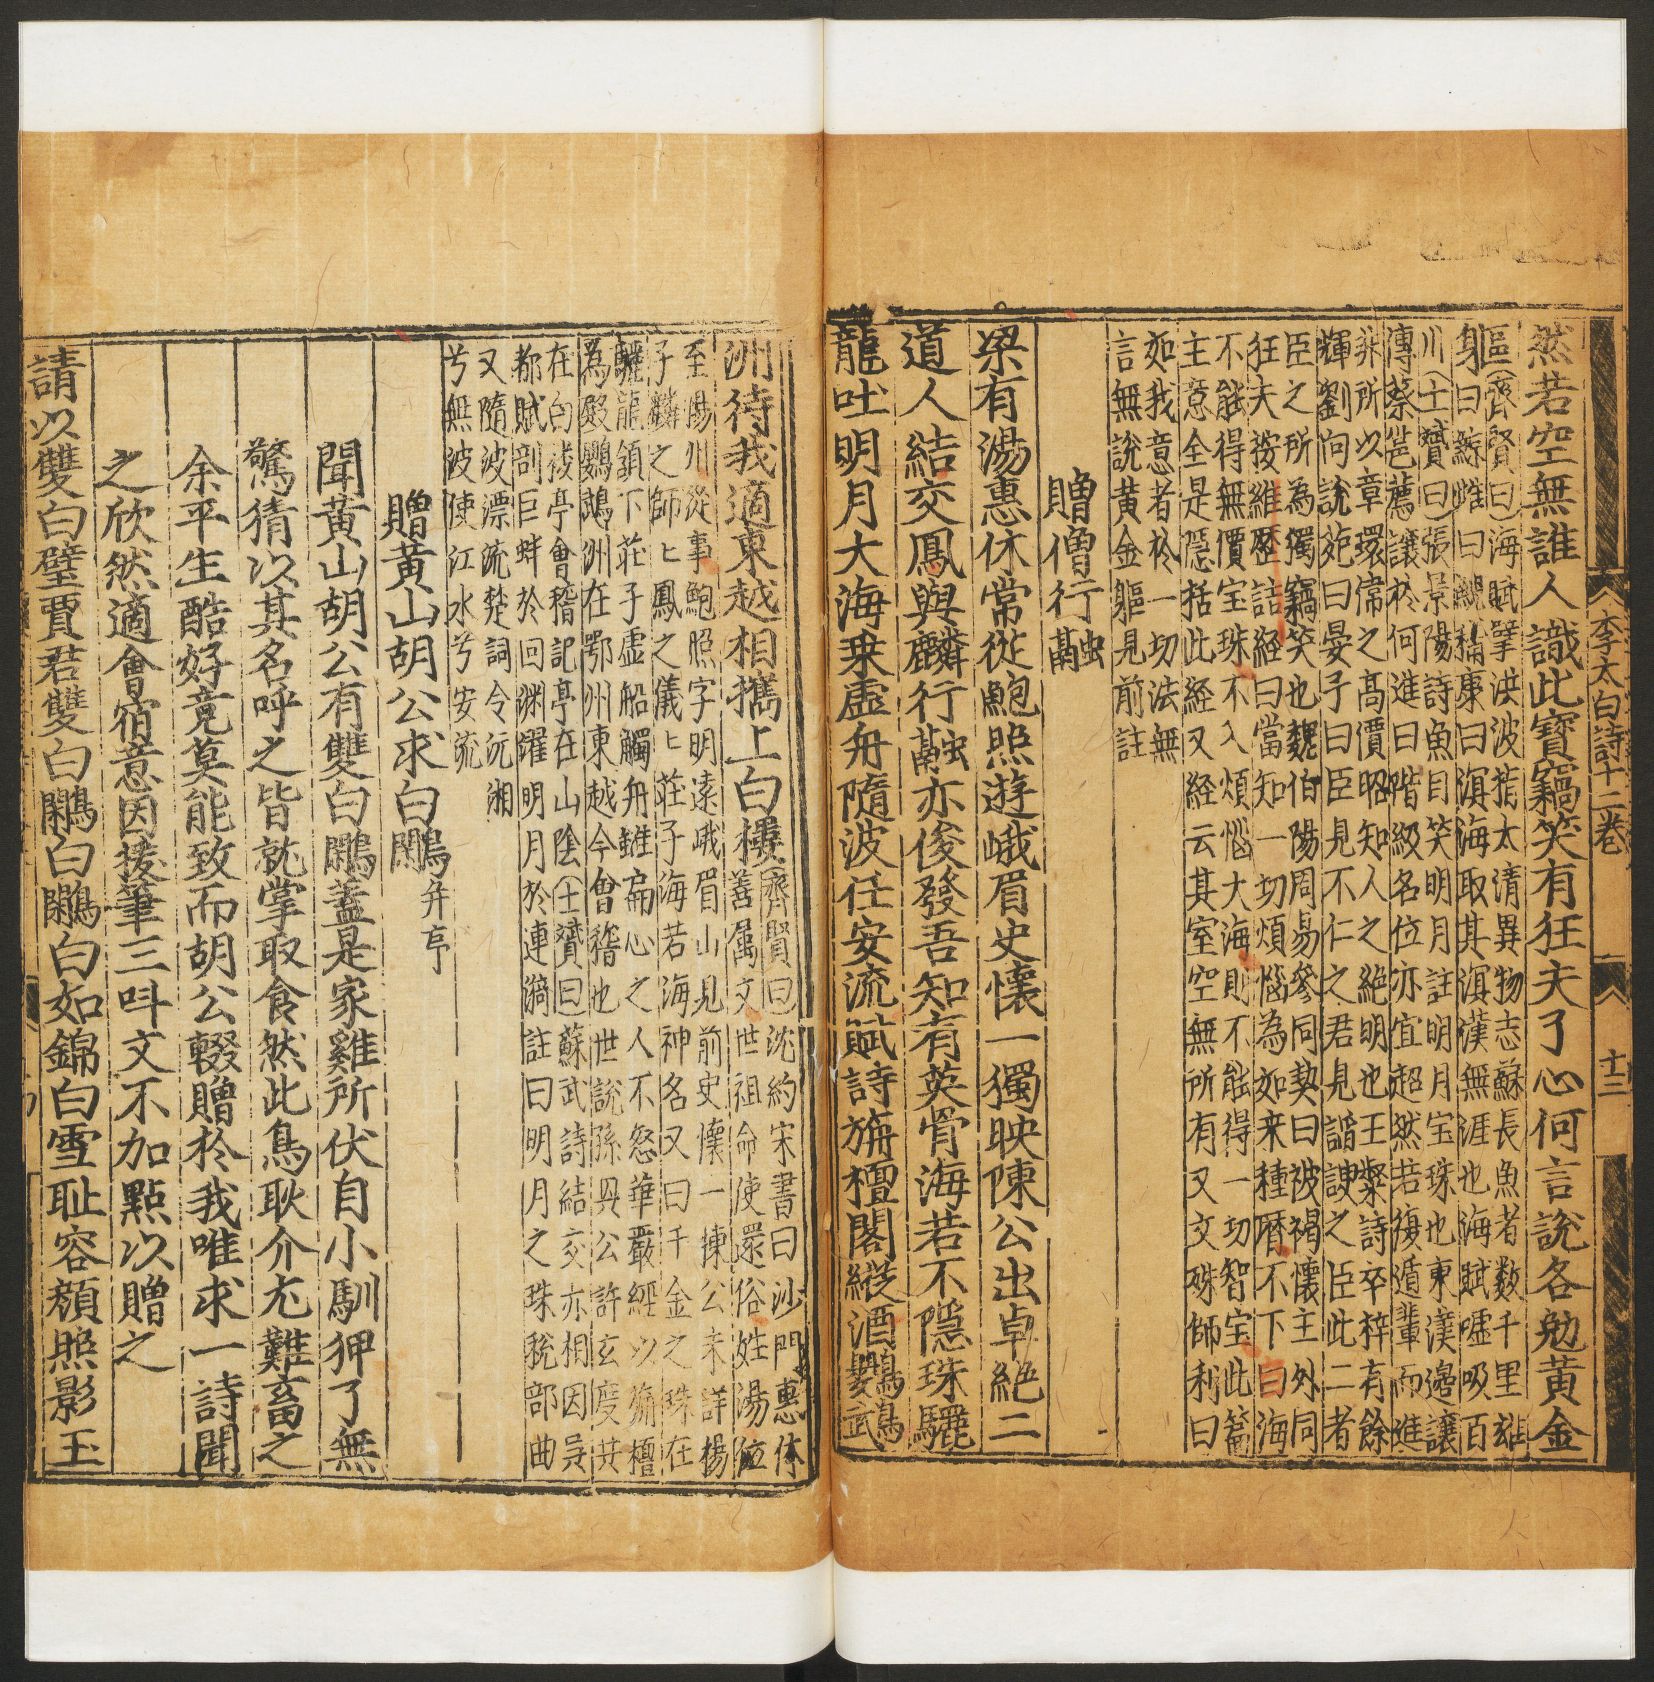 李太白詩十二卷
十二
然若空無誰人識此寶竊笑有狂夫了心何言說各勉黃金
軀(齊賢曰)海賦擘洪波指太清異物志蘇長魚者数千里雄
身曰鯨雌曰鯢
曰溟海取其溟漠無涯也海賦噓吸百
川(士贇曰)張景陽詩魚目笑明月註明月宝珠也東漢邊讓
傳蔡邕薦讓於何進曰階級名位亦宜超然若復隨輩而進
非所以章瓌偉之高價昭知人之絶明也王粲詩卞梓有餘
輝劉向說苑曰晏子曰臣見不仁之君見謟諛之臣此二者
臣之所為獨竊笑也魏伯陽周易參同契曰被褐懷主外同
狂夫按維摩詰経曰當知一切煩惱為如来種曆不下曰海
不能得無價宝珠不入煩惱大海則不能得一切智宝此篇
主意全是隱括此経又経云其室空無所有又文殊師利曰
如我意者於一切法無
言無說黃金軀見前註
贈僧行融
梁有湯惠休常從鮑照遊峨眉史懷一獨映陳公出卓絶二
道人結交鳳與麟行融亦俊發吾知有英骨海若不隱珠驪
龍吐明月大海乗虛舟隨波任安流賦詩旃檀閣縱酒鸚鵡
洲待我適東越相攜上白樓(齊賢曰)沈約宋書曰沙門惠休
善属文世祖命使還俗姓湯位
至揚州從事鮑照字明遠峨眉山見前史懷一揀公未詳楊
子麟之師匕鳳之儀匕莊子海若海神名又曰千金之珠在
驪龍頷下荘子虛船觸舟雖褊心之人不怒華嚴經以旃檀
為殿鸚鵡洲在鄂州東越今會稽也世說孫興公許玄度共
在白樓亭會稽記亭在山隂(士贇曰)蘇武詩結交亦相因吳
都賦剖巨蚌於回渊躍明月於連漪註曰明月之珠税部曲
又隨波漂流楚詞令沅湘
兮無波使江水兮安流
贈黃山胡公求白鷴并序
聞黃山胡公有雙白鷴蓋是家雞所伏自小馴狎了無
驚猜以其名呼之皆就掌取食然此鳥耿介尤難畜之
余平生酷好竟莫能致而胡公輟贈於我唯求一詩聞
之欣然適會宿意因援筆三呌文不加點以贈之
請以雙白璧買君雙白鷴白鷴白如錦白雪耻容顔照影玉